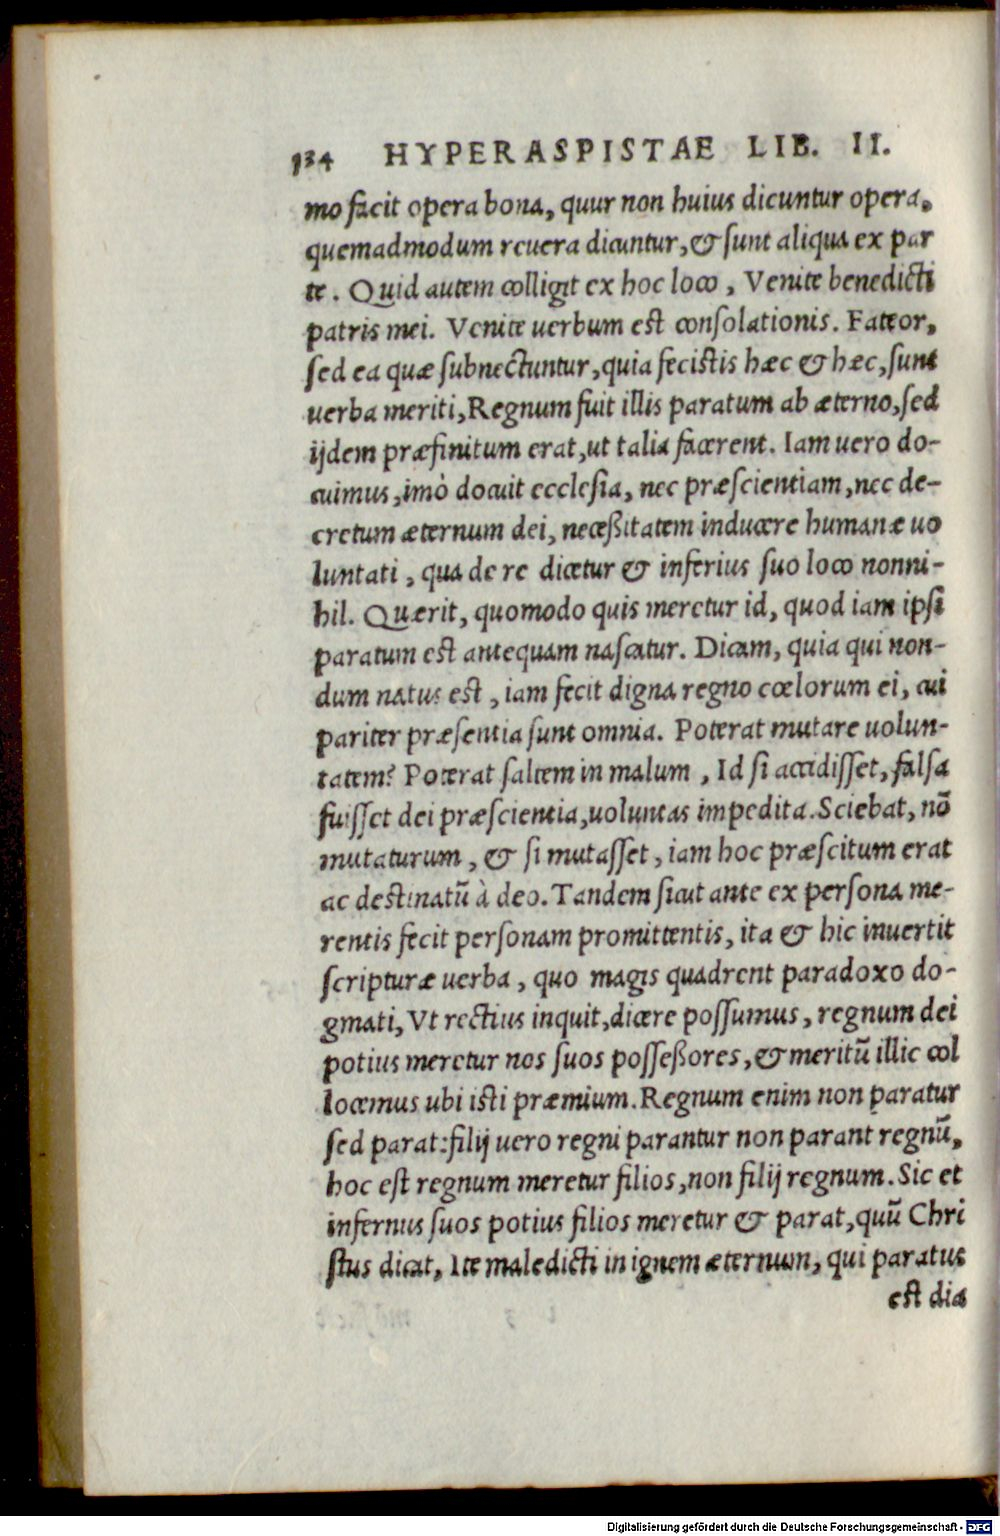 134 HYPERASPISTAE LIB. II.
mo facit opera bona, quur non huius dicuntur opera,
quemadmodum reuera dicuntur, & sunt aliqua ex par
te. Quid autem colligit ex hoc loco, Venite benedicti
patris mei. Venite uerbum est consolationis. Fateor,
sed ea quæ subnectuntur, quia fecistis hæc & hæc, sunt
uerba meriti, Regnum fuit illis paratum ab æterno, sed
ijdem præfinitum erat, ut talia facerent. Iam uero do-
cuimus, imò docuit ecclesia, nec præscientiam, nec de-
cretum æternum dei, neceßitatem inducere humanæ uo
luntati, qua de re dicetur & inferius suo loco nonni-
hil. Quærit, quomodo quis meretur id, quod iam ipsi
paratum est antequam nascatur. Dicam, quia qui non-
dum natus est, iam fecit digna regno cœlorum ei, cui
pariter præsentia sunt omnia. Poterat mutare uolun-
tatem? Poterat saltem in malum, Id si accidisset, falsa
fuisset dei præscientia, uoluntas impedita. Sciebat, nō
mutaturum, & si mutasset, iam hoc præscitum erat
ac destinatū à deo. Tandem sicut ante ex persona me-
rentis fecit personam promittentis, ita & hic inuertit
scripturæ uerba, quo magis quadrent paradoxo do-
gmati, Vt rectius inquit, dicere possumus, regnum dei
potius meretur nos suos posseßores, & meritū illic col
locemus ubi isti præmium. Regnum enim non paratur
sed parat: filij uero regni parantur non parant regnū,
hoc est regnum meretur filios, non filij regnum. Sic et
infernus suos potius filios meretur & parat, quū Chri
stus dicat, Ite maledicti in ignem æternum, qui paratus
est dia
Digitalisierung gefördert durch die Deutsche Forschungsgemeinschaft - DFG